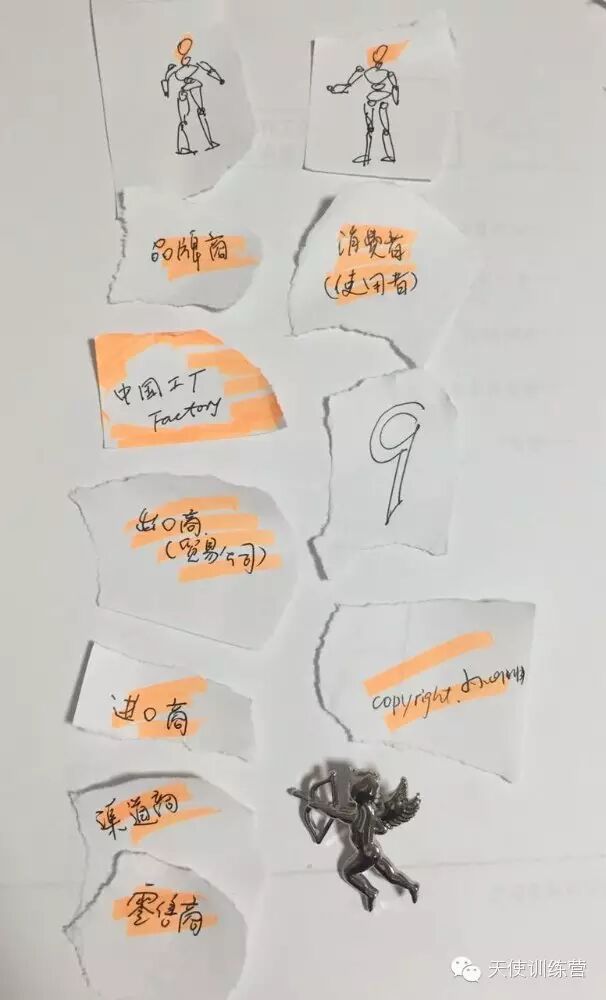 品牌商
消费者
(使用者)
中国工厂
Factory
9
出口商
(贸易公司)
进口商
copyright.
渠道商
零售商
天使训练营